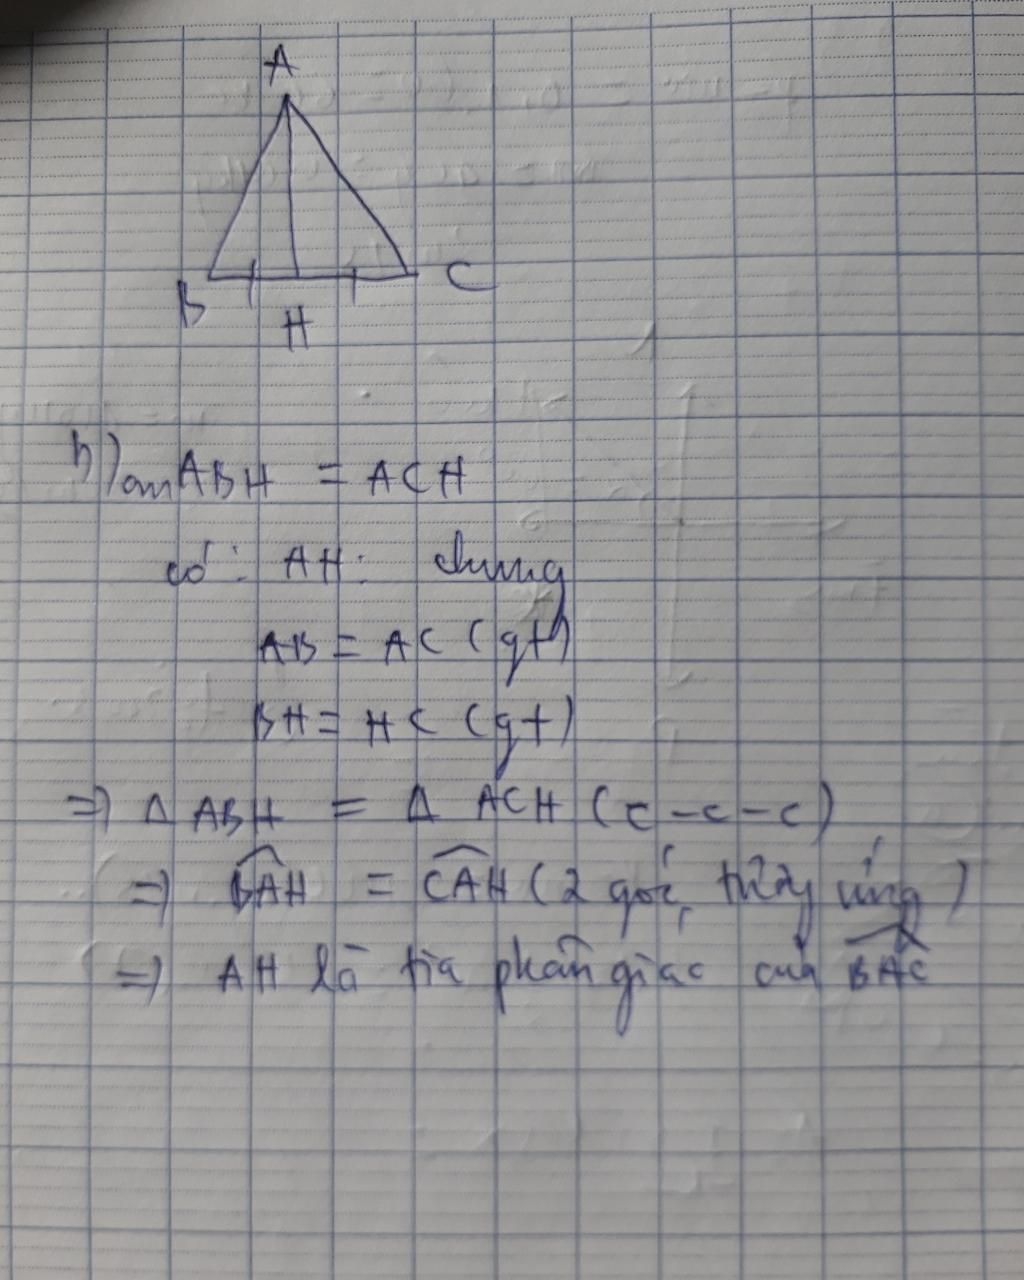 A
B
H
C
b) ABH = ACH
có: AH: chung
AB = AC (gt)
BH = HC (gt)
=> Δ ABH = Δ ACH (c-c-c)
=> BAH = CAH (2 góc ứng)
=> AH là tia phân giác của BAC